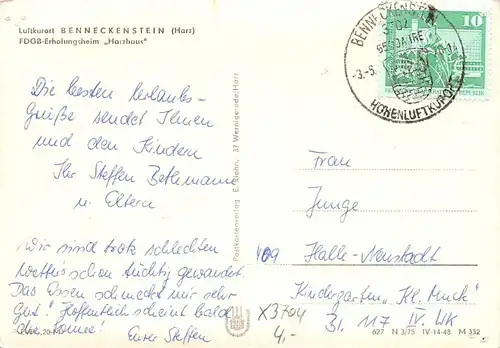 Luftkurort BENNECKENSTEIN (Harz)
FDGB-Erholungsheim „Harzhaus"
Die besten Urlaubs-
grüße sendet Ihnen
und den Kindern
Ihr Steffen Bethmann
u. Eltern
Wir sind trotz schlechten
Wetters schon tüchtig gewandert.
Das Essen schmeckt mir sehr
gut! Hoffentlich scheint bald
die Sonne!
Eurer Steffen
Postkartenverlag E. Riehn, 37 Wernigerode/Harz
BENNECKENSTEIN
3702
650 JAHRE
HÖHENLUFTKURORT
10
Frau
Junge
409 Halle-Neustadt
Kindergarten „Kl. Muck"
Bl. 117 IV. WK
X3704
4,-
627 N 3/75 IV-14-48 M 332